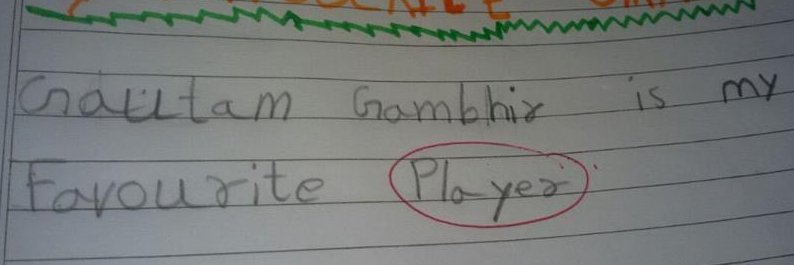 Gautam Gambhir is my
Favourite Player